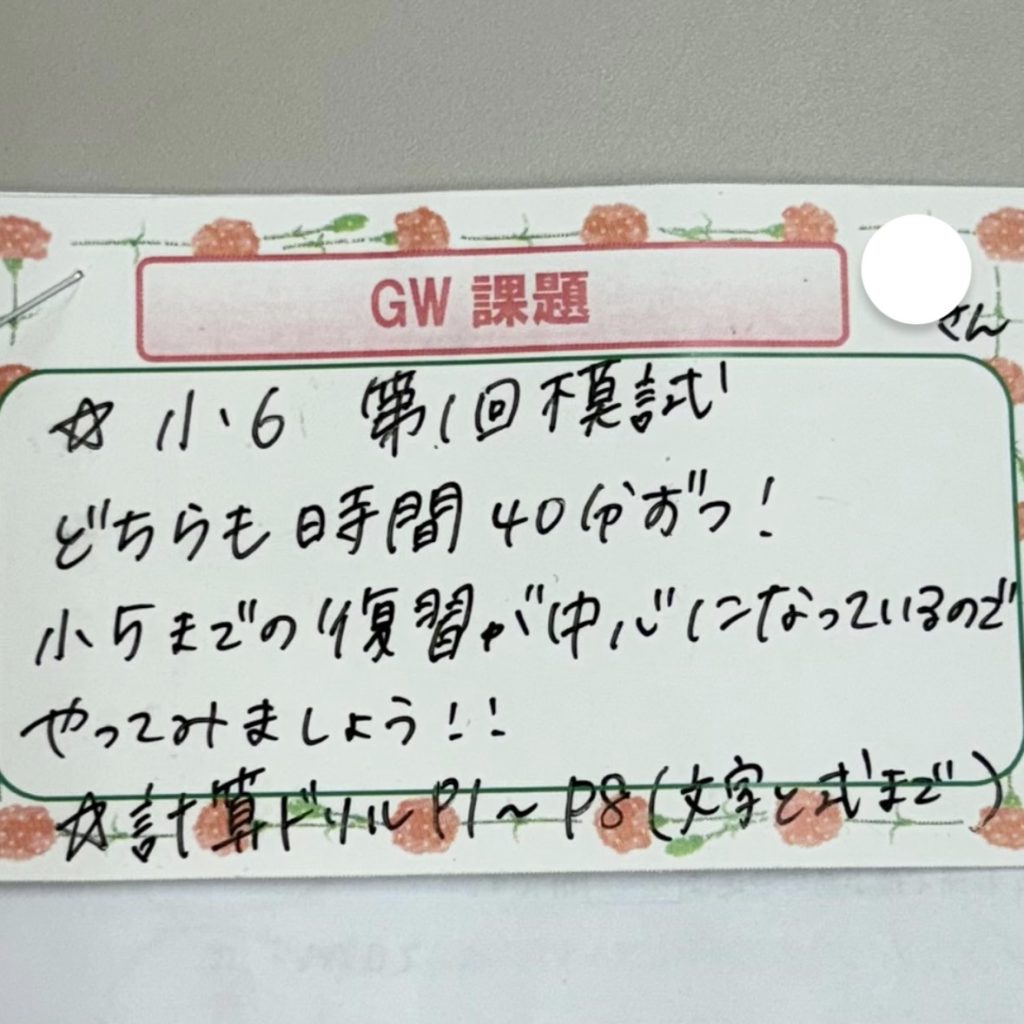 GW 課題
さん
☆ 小6 第1回模試
どちらも時間40分ずつ!
小5までの復習が中心になっているので
やってみましょう!!
☆計算ドリルP1~P8(文字と式まで)